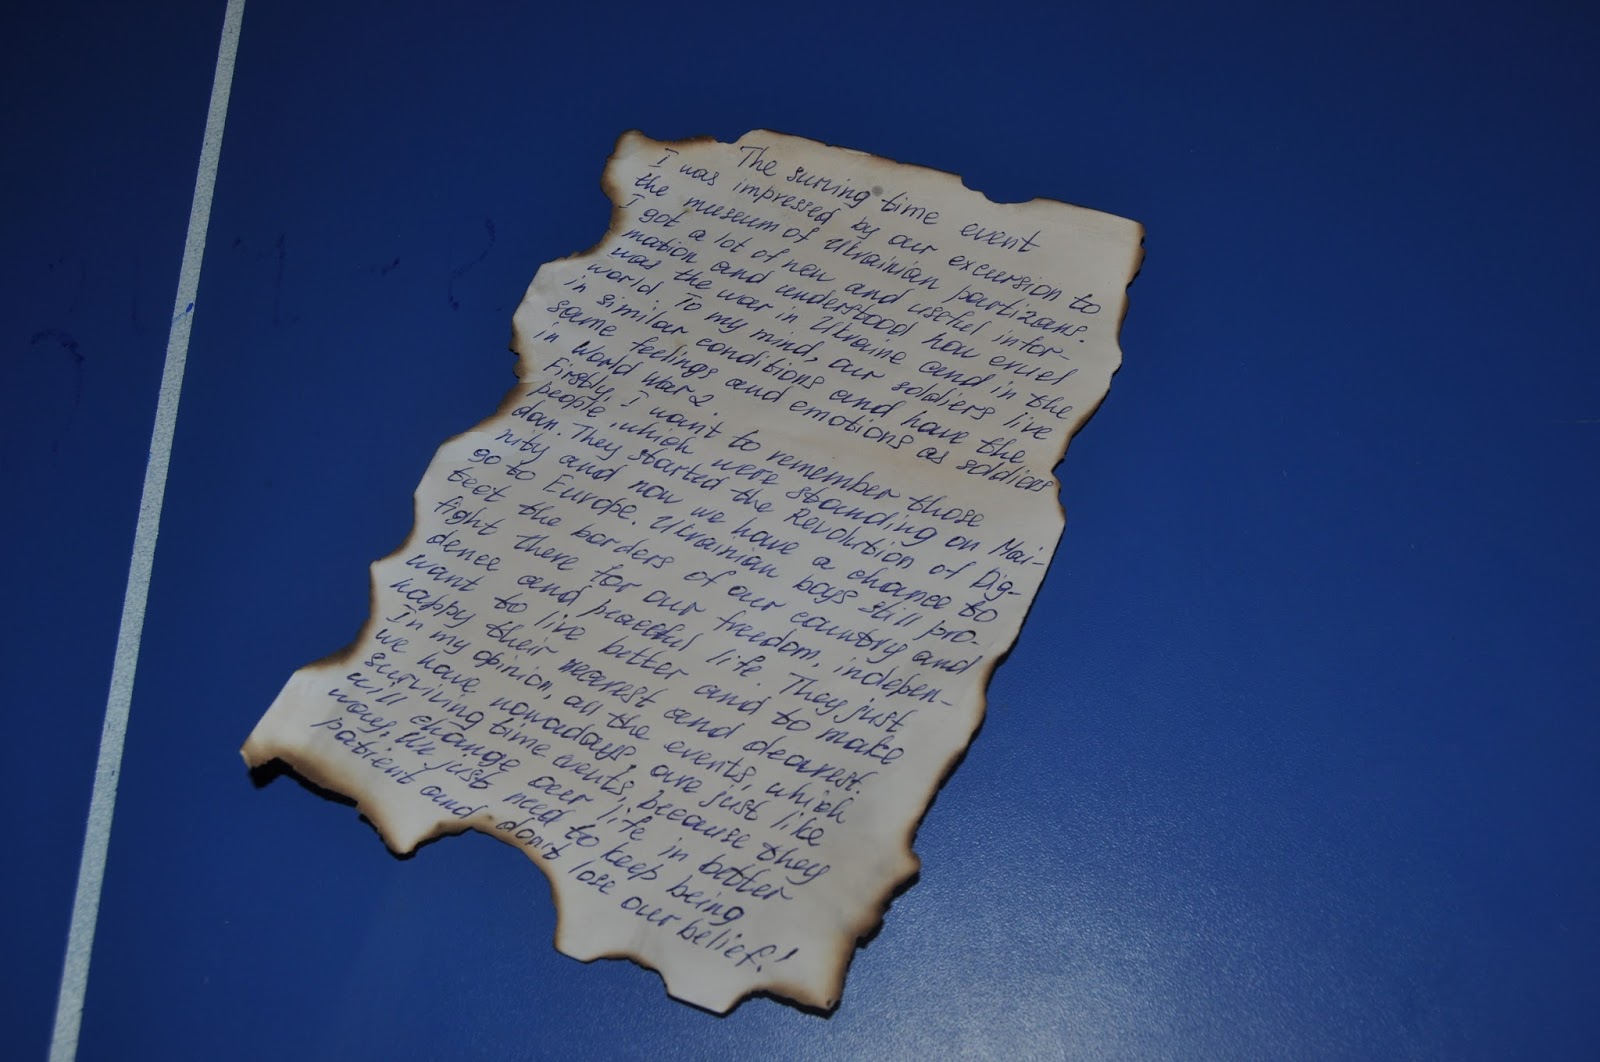 The surving time event
I was impressed by our excursion to
the museum of Ukrainian partizans.
I got a lot of new and useful infor-
mation and understood how cruel
was the war in Ukraine and in the
world. To my mind, our soldiers live
in similar conditions and have the
same feelings and emotions as soldiers
in World War 2.
Firstly, I want to remember those
people, which were standing on Mai-
dan. They started the Revolution of Dig-
nity and now we have a chance to
go to Europe. Ukrainian boys still pro-
tect the borders of our country and
fight there for our freedom, indepen-
dence and peaceful life. They just
want to live better and to make
happy their nearest and dearest.
In my opinion, all the events, which
we have nowadays, are just like
surviving time events, because they
will change our life in better
way. We just need to keep being
patient and don't lose our belief!